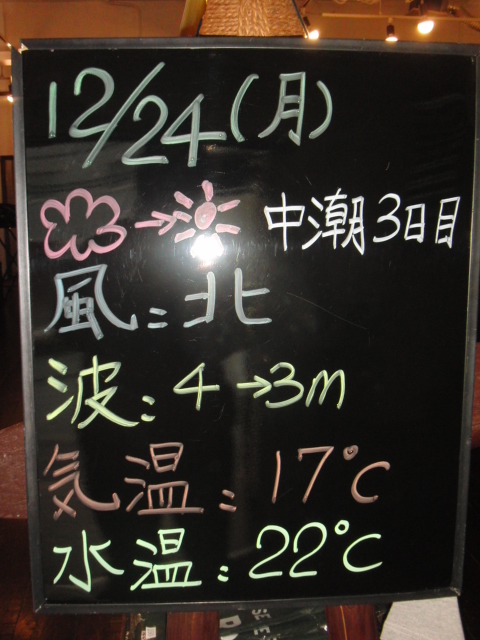 12/24(月)
→ 中潮3日目
風:北
波:4→3m
気温:17℃
水温:22℃